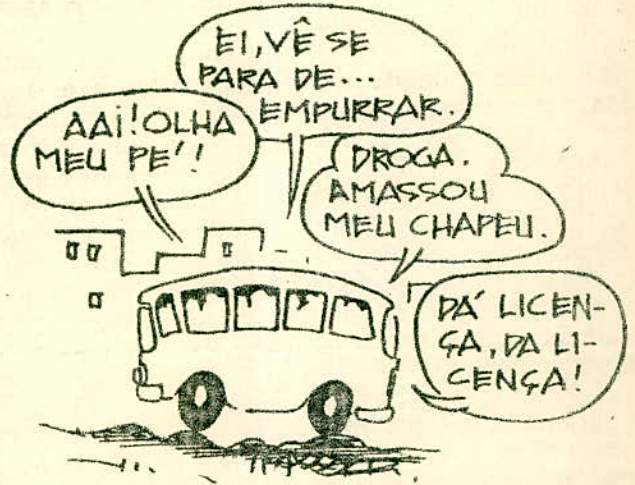 EI, VÊ SE
PARA DE...
EMPURRAR.
AAI! OLHA
MEU PE'!
DROGA.
AMASSOU
MEU CHAPEU.
DA' LICEN-
ÇA, DA LI-
CENÇA!